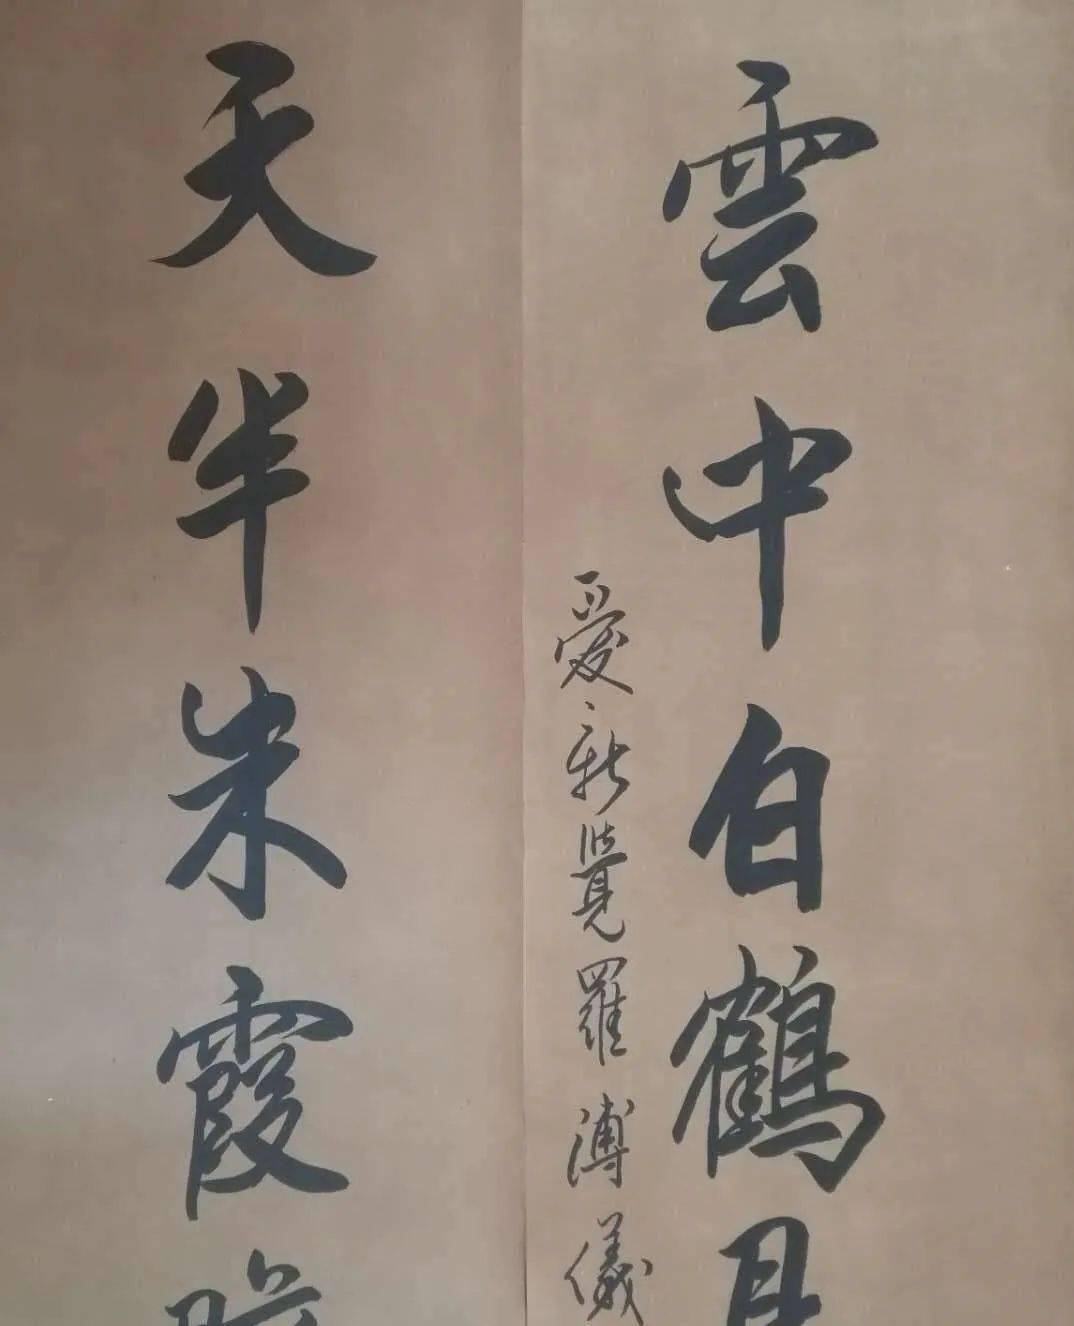 雲中白鶴見
愛新覺羅溥儀
天半朱霞